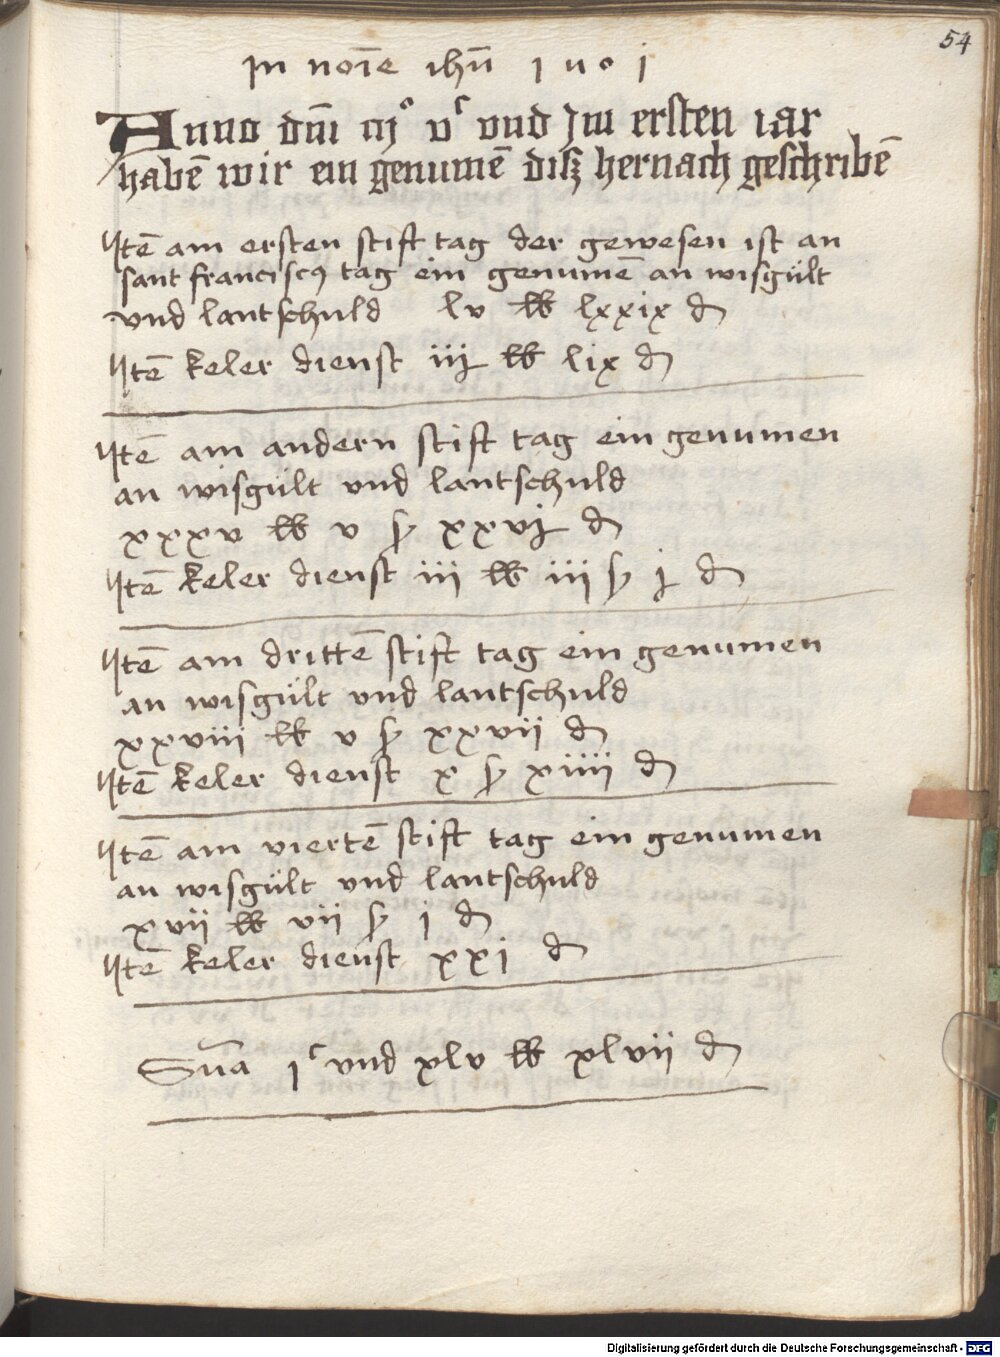 54
In noīe ihū 1 u o 1
Anno dm̄ mj° vᶜ vnd Jm ersten iar
habē wir ein genumē disz hernach geschribē
Itē am ersten stift tag der gewesen ist an
sant franciscꝰ tag ein genumē an wisgült
vnd lantschuld lv ℔ lxxix ₰
Itē keler dienst iij ℔ lix ₰
Itē am andern stift tag ein genumen
an wisgült vnd lantschuld
xxxv ℔ v ß xxvj ₰
Itē keler dienst iii ℔ iii ß j ₰
Itē am drittē stift tag ein genumen
an wisgült vnd lantschuld
xxviii ℔ v ß xxvii ₰
Itē keler dienst x ß xiiii ₰
Itē am viertē stift tag ein genumen
an wisgült vnd lantschuld
xvii ℔ vii ß j ₰
Itē keler dienst xxj ₰
Sūa jᶜ vnd xlv ℔ xlvii ₰
Digitalisierung gefördert durch die Deutsche Forschungsgemeinschaft - DFG